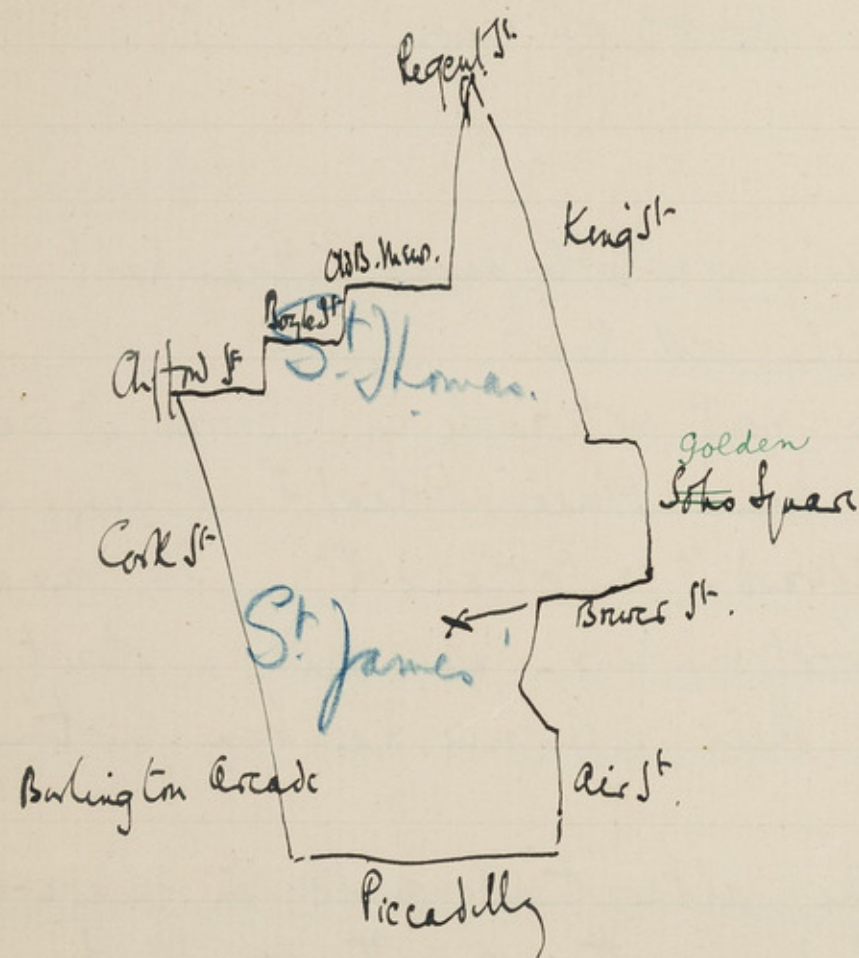 Regent St.
King St
Old B. Mews.
Boyle St
St. Thomas.
Clifford St
Golden
Soho Square
Cork St
Brewer St.
St. James'
Burlington Arcade
Air St.
Piccadilly